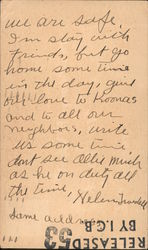 we are safe,
I'm stay with
friends, but go
home some time
in the day, give
all love to
and to all our
neighbors, write
us some time
dont see Allie much
as he on duty all
the time,
Helen
same address
RELEASED
BY I.C.B.
53